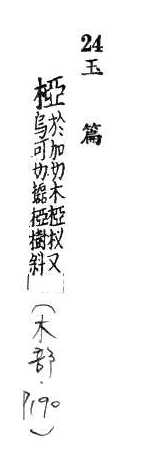 24
玉篇
椏於加切木椏杈又
烏可切㯫椏樹斜
(木部·P190)